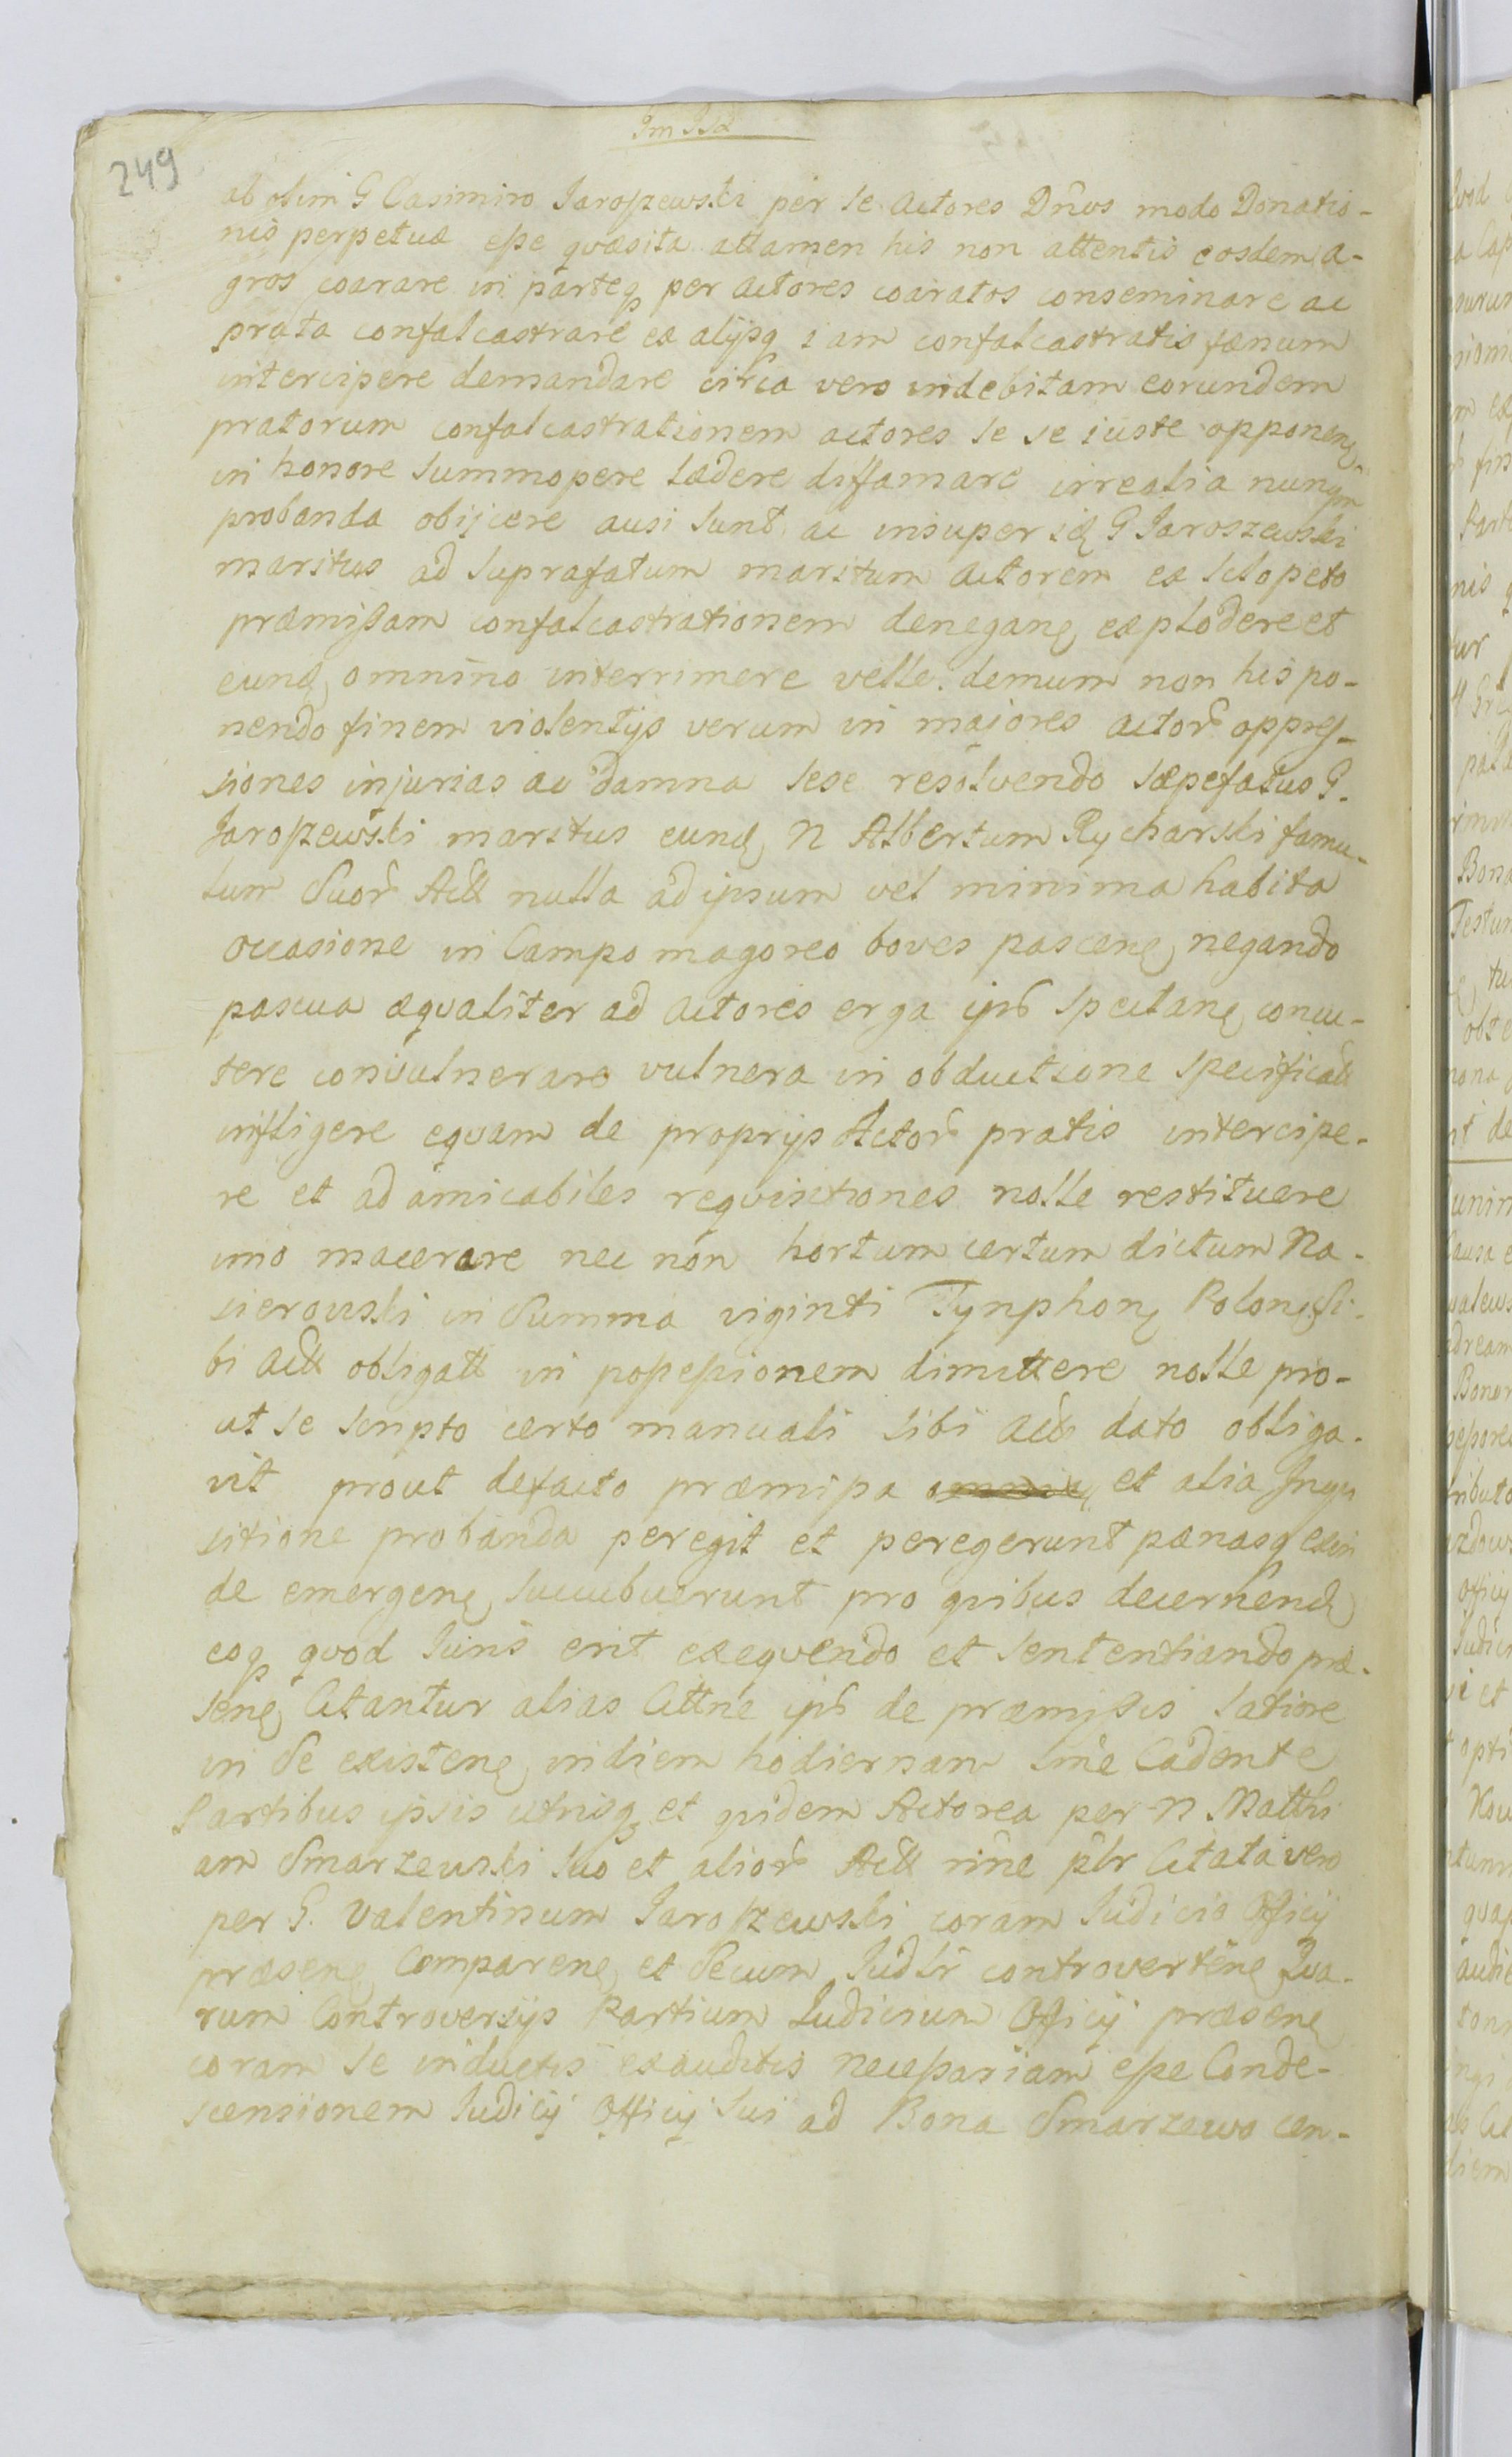 249
ab olim G Casimiro Jaroszewski per se Actores Dnos modo Donatio-
nis perpetuæ esse quæsita attamen his non attentis eosdem a-
gros coarare in parteq per Actores coaratos conseminare ac
prata confalcastrare ex alijsq iam confalcastratis fænum
intercipere demandare circa vero indebitam eorundem
pratorum confalcastrationem actores se se iuste opponen
in honore summopere lædere diffamare irrealia nunqm
probanda obijcere ausi sunt ac insuper id G Jaroszewski
maritus ad suprafatum maritum Actorem ex sclopeto
præmissam confalcastrationem denegan explodere et
eund omnino interrimere velle demum non his po-
nendo finem violentijs verum in majores actor oppres-
siones injurias ac damna sese resolvendo sæpefatus G.
Jaroszewski maritus eund N Albertum Rycharski famu-
lum Suor Act nulla ad ipsum vel minima habita
occasione in Campo magoreo boves pascen negando
pascua æqualiter ad Actores erga ips spectan concu-
tere convulnerare vulnera in obductione specificat
infligere equam de proprijs Actor pratis intercipe-
re et ad amicabiles requisitiones nolle restituere
imo macerare nec non hortum certum dictum Na-
sierowski in Summa viginti Tynphon Polon Si-
bi Act obligatt in possessionem dimittere nolle pro-
ut se scripto certo manuali sibi Act dato obliga-
vit prout defacto præmissa et alia Inqui
sitione probanda peregit et peregerunt pænasq exin
de emergen succubuerunt pro quibus decernend
eoq quod Iuris erit exequendo et sententiando præ-
sen Citantur alias Cittne ips de præmissis latiore
in Se existen in diem hodiernam sme Cadente
Partibus ipsis utrisq et quidem Actorea per N Matthi
am Smarzewski suo et alior Act nine plr Citata vero
per G. Valentinum Jaroszewski coram Judicio Officij
præsen Comparen et Secum Judlr controverten Qua-
rum Controversijs Partium Judicium Officij præsen
coram se inductis exauditis necessariam esse Conde-
scensionem Judicij Officij sui ad Bona Smarzewo cen-